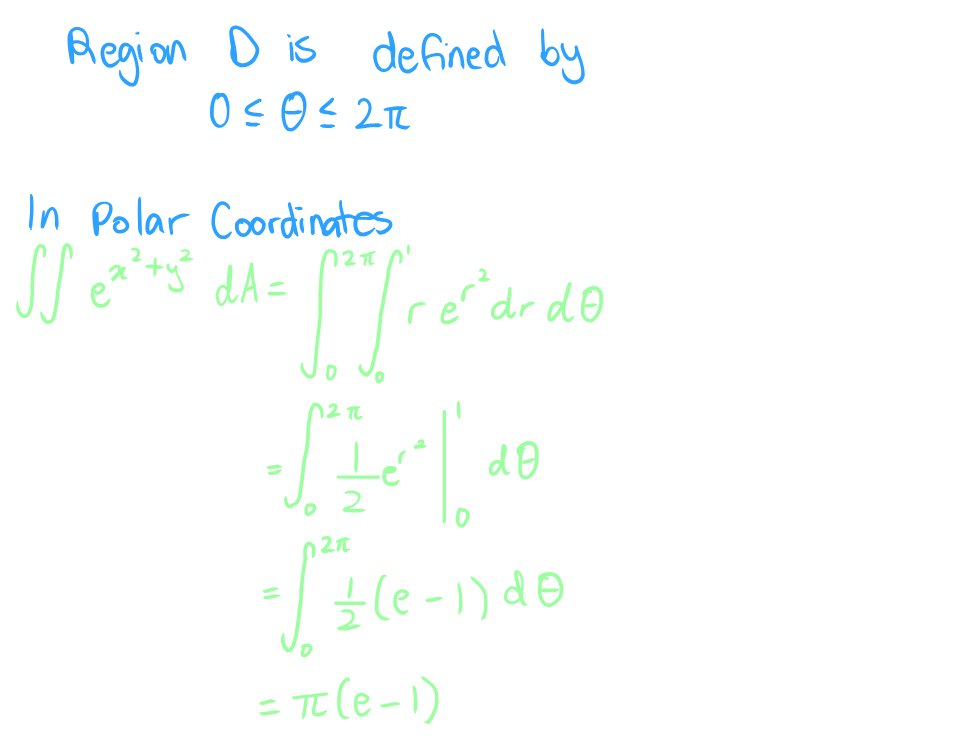 Region D is defined by
0 ≤ θ ≤ 2π
In Polar Coordinates
∬ e^{x^2+y^2} dA = ∫_0^{2π} ∫_0^1 r e^{r^2} dr dθ
= ∫_0^{2π} \frac{1}{2} e^{r^2} |_0^1 dθ
= ∫_0^{2π} \frac{1}{2} (e - 1) dθ
= π(e - 1)